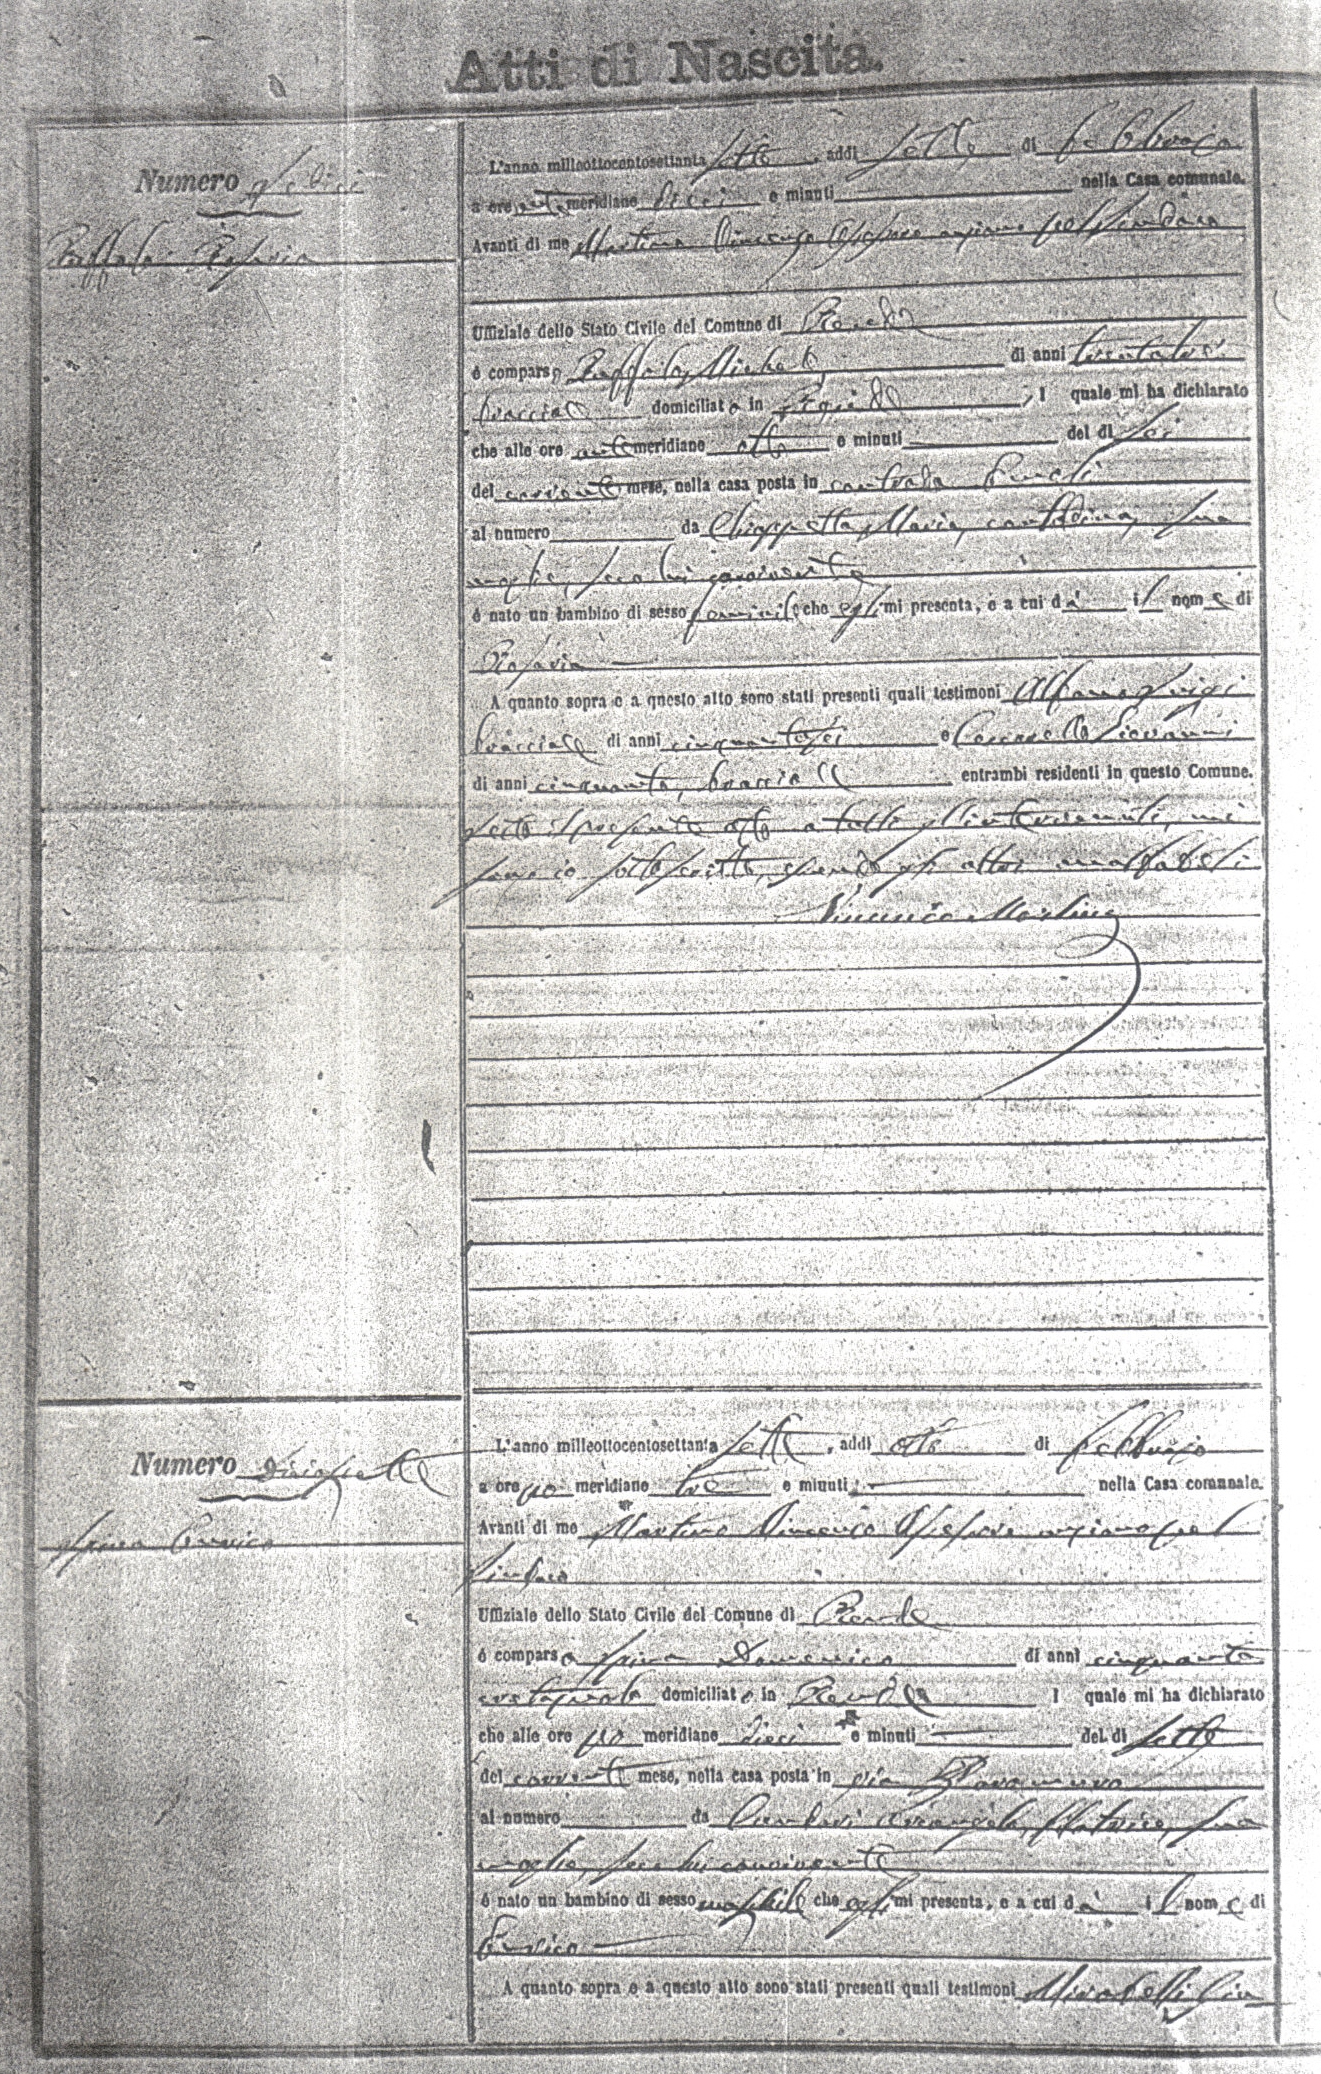 Atti di Nascita.
Numero sedici
Ruffolo Rosaria
L'anno milleottocentosettanta sette, addì sette di Febbraio
a ore antemeridiane dieci e minuti nella Casa comunale.
Avanti di me Martino Vincenzo Assessore anziano pel Sindaco
Uffiziale dello Stato Civile del Comune di Rende
è comparso Ruffolo Michele, di anni trentatre
bracciale domiciliato in Rende, il quale mi ha dichiarato
che alle ore antemeridiane otto e minuti del dì sei
del corrente mese, nella casa posta in contrada
al numero da Chiappetta Maria, contadina, sua
moglie, seco lui convivente
è nato un bambino di sesso feminile che egli mi presenta, e a cui dà il nome di
Rosaria
A quanto sopra e a questo atto sono stati presenti quali testimoni Alfano Luigi
bracciale di anni cinquantasei e Giovanni
di anni cinquanta, bracciale entrambi residenti in questo Comune.
Letto il presente atto a tutti gl'intervenuti, mi
sono io sottoscritto, essendo gli altri analfabeti
Vincenzo Martino
Numero diciassette
Spina Enrico
L'anno milleottocentosettanta sette, addì otto di Febbraio
a ore pomeridiane tre e minuti nella Casa comunale.
Avanti di me Martino Vincenzo Assessore anziano pel
Sindaco
Uffiziale dello Stato Civile del Comune di Rende
è comparso Spina Domenico di anni cinquanta
domiciliato in Rende il quale mi ha dichiarato
che alle ore pomeridiane dieci e minuti del dì sette
del corrente mese, nella casa posta in via
al numero da Arcangela, filatrice, sua
moglie, seco lui convivente
è nato un bambino di sesso maschile che egli mi presenta, e a cui dà il nome di
Enrico
A quanto sopra e a questo atto sono stati presenti quali testimoni Mirabelli Giu